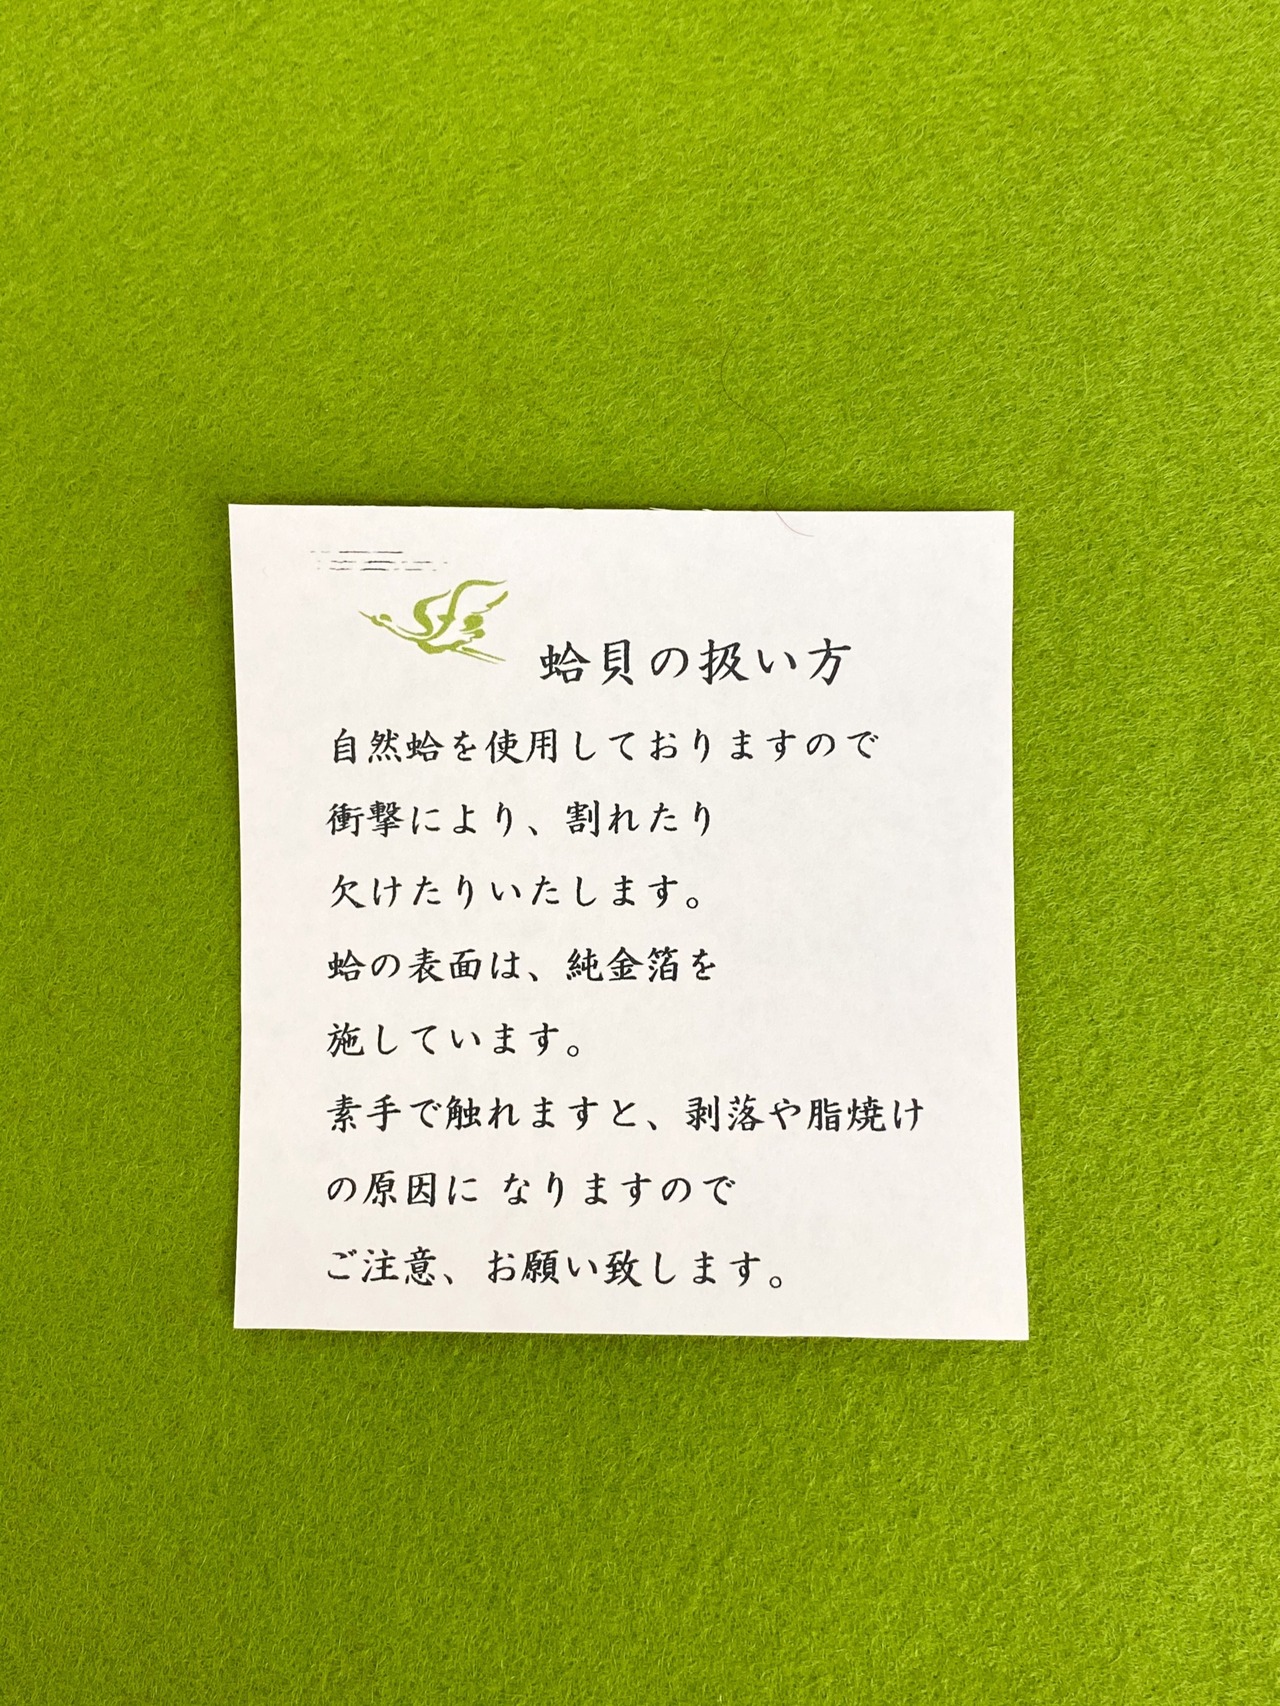 蛤貝の扱い方
自然蛤を使用しておりますので
衝撃により、割れたり
欠けたりいたします。
蛤の表面は、純金箔を
施しています。
素手で触れますと、剥落や脂焼け
の原因に なりますので
ご注意、お願い致します。